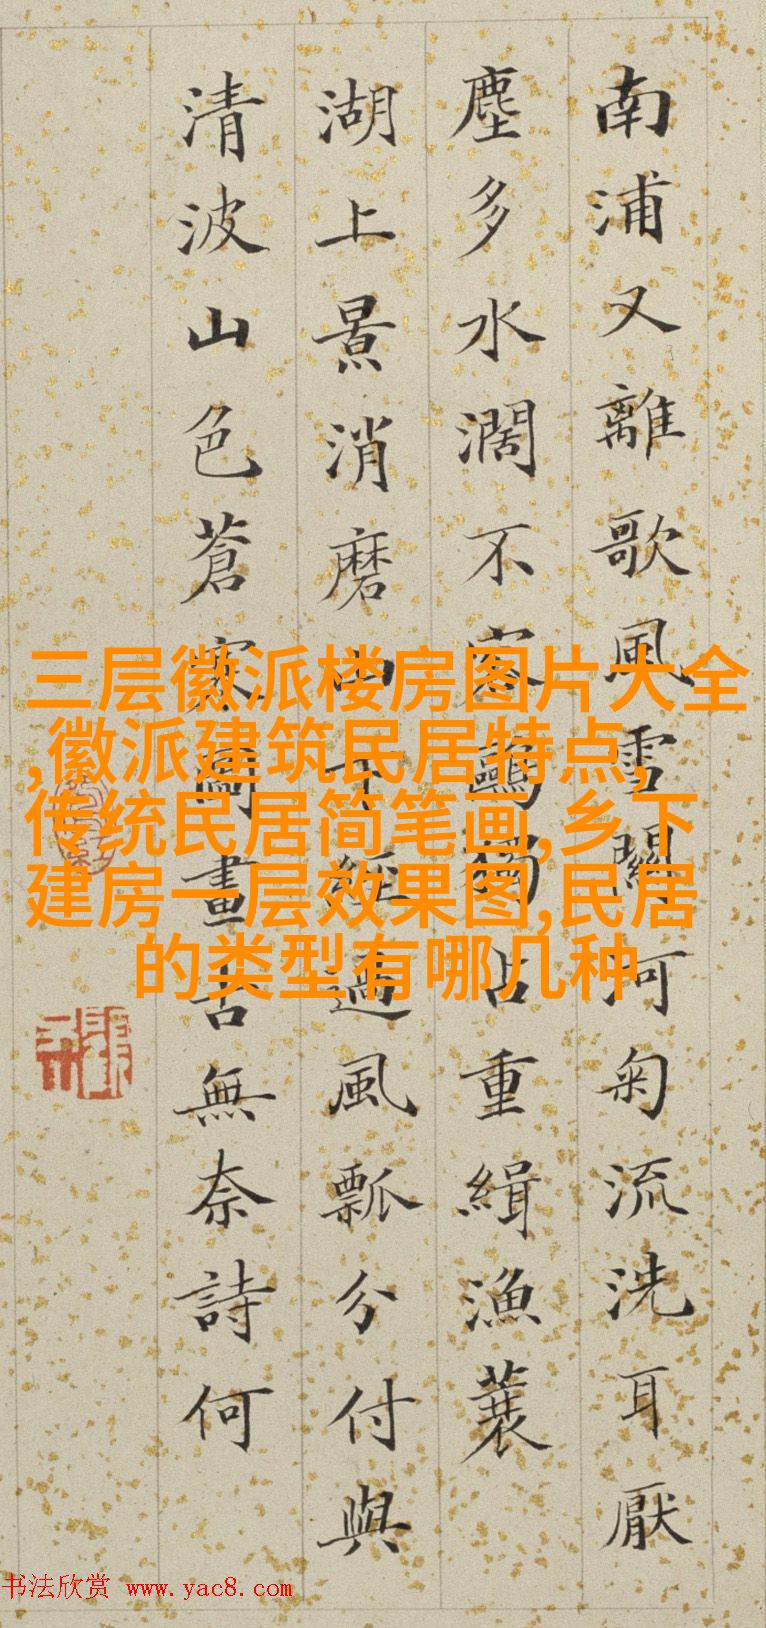 南浦又離歌風雪關河匊流洗耳厭
塵多水濶不容鷗獨占重緝漁蓑
湖上景消磨山下經過風瓢分付與
清波山色蒼寒圖畫古無奈詩何
三层徽派楼房图片大全
,徽派建筑民居特点,
传统民居简笔画,乡下
建房一层效果图,民居
的类型有哪几种
书法欣赏 www.yac8.com